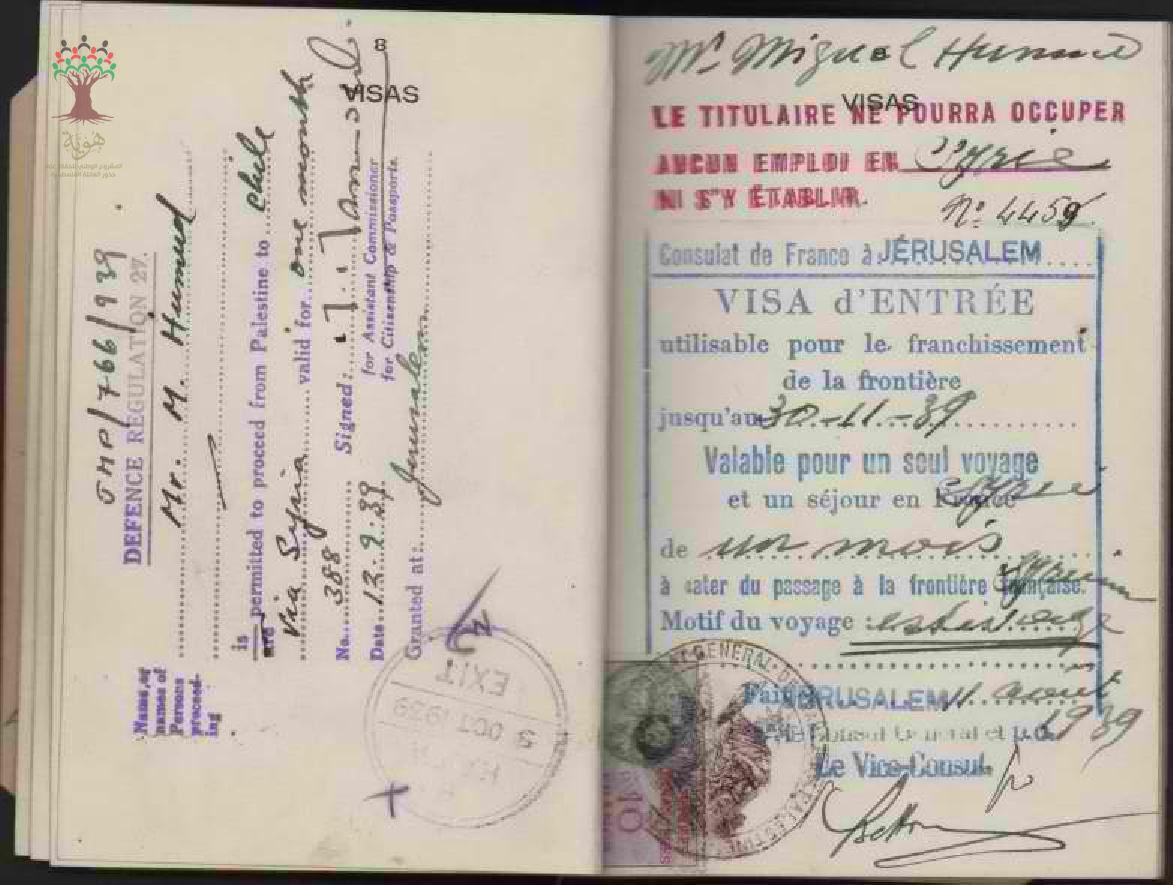 8
VISAS
OMP/766/939
DEFENCE REGULATION 27.
Name, or
names of
Persons
proceed-
ing
Mr. M. Humud
is
are permitted to proceed from Palestine to chile
via Syria valid for one month
No. 388 Signed:
Date 13.9.39 for Assistant Commissioner
for Citizenship & Passports.
Granted at: Jerusalem
EXIT
3 OCT 1939
هوية
8
VISAS
Mr Miguel
LE TITULAIRE NE POURRA OCCUPER
AUCUN EMPLOI EN Syrie
NI S'Y ÉTABLIR.
No 4459
Consulat de France à JÉRUSALEM
VISA d'ENTRÉE
utilisable pour le franchissement
de la frontière
jusqu'au 30-11-39
Valable pour un seul voyage
et un séjour en France Syrie
de un mois
à dater du passage à la frontière française.
Motif du voyage :
Fait à JÉRUSALEM 11 août
1939
Le Consul Général et p.o.
Le Vice-Consul.
10